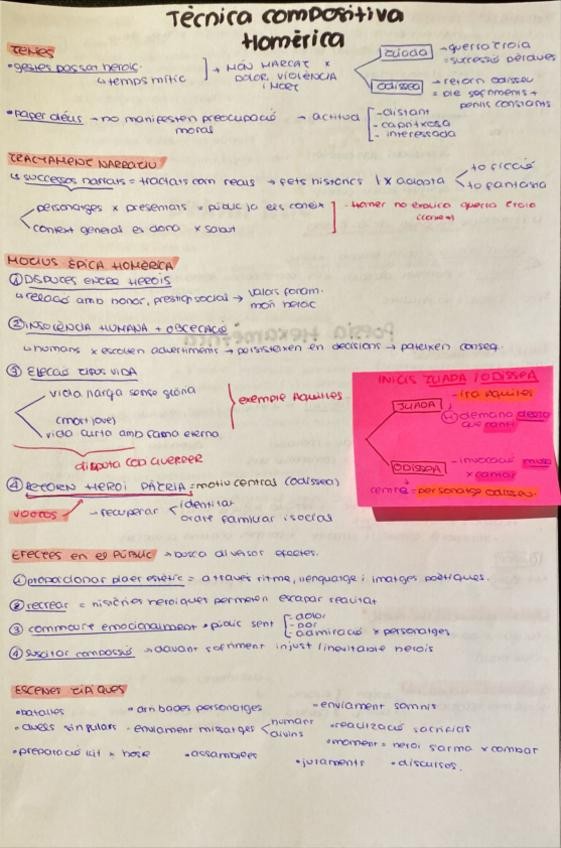 Tècnica compositiva
Homèrica
TEMES
• gestes passat herois.
↳ temps mític
] → MÓN MARCAT x
DOLOR, VIOLÈNCIA
i MORT
ILIADA → guerra troia
= successió
ODISSEA → retorn odisseu
= ple
perills constants
• paper déus → no manifesten preocupació
moral
→ actitud
- distant
- capritxosa
- interessada
TRACTAMENT NARRATIU
↳ successos narrats = tractats com reals → fets històrics
personatges x presentats = públic ja els coneix
context general es dona x sabut
- Homer no explica guerra troia
(context)
MOTIUS ÈPICA HOMÈRICA
① DISPUTES ENTRE HEROIS
↳ relació amb honor, prestigi social → valors fonam.
món heroic
② INSOLÈNCIA HUMANA + OBCECACIÓ
↳ humans x escolten advertiments → persisteixen en decisions → pateixen conseq.
③ ELECCIÓ TIPUS VIDA
vida llarga sense glòria
(mort jove)
vida curta amb fama eterna
exemple Aquil·les
disputa COP GUERRER
④ RETORN HEROI PÀTRIA = motiu central (odissea)
→ recuperar
identitat
familiar i social
INICIS ILIADA / ODISSEA
ILIADA
- ira Aquil·les
demana
que canti
ODISSEA
- invocació musa
x cantar
centre = personatge odisseu.
EFECTES EN EL PÚBLIC → busca diversos efectes.
① proporcionar plaer estètic = a través ritme, llenguatge i imatges poètiques.
② recrear = històries heroiques permeten escapar realitat
③ commoure emocionalment → públic sent
- dolor
- por
- admiració x personatges
④ suscitar compassió → davant sofriment injust / inevitable herois
ESCENES TÍPIQUES
• batalles
• arribades personatges
- enviament somnis
• duels singulars
- enviament missatges
humans
divins
• realització sacrificis
• moment = heroi s'arma x combat
• preparació llit x hoste
• assamblees
• juraments
• discursos.